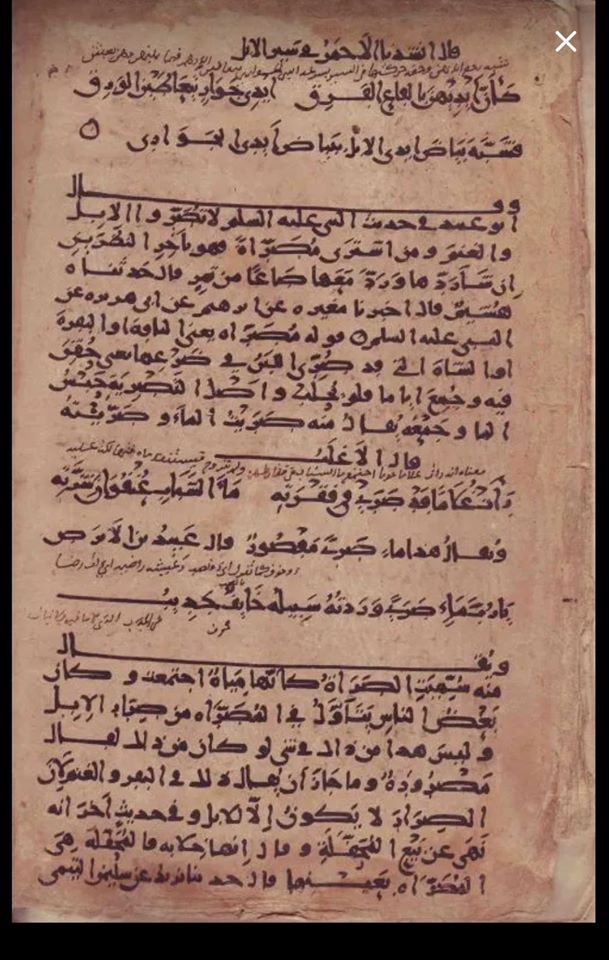 قال انشدنا الاحمر في سير الابل
كأن أيديهن بالقاع القرق أيدي جوار يتعاطين الورق
فشبه بياض ايدى الابل ببياض أيدى الجوارى
وقال
ابو عبيد في حديث النبي عليه السلم لا تصروا الابل
والغنم ومن اشترى مصراة فهو بآخر النظرين
إن شا ردها ورد معها صاعا من تمر قال حدثناه
هشيم قال اخبرنا مغيره عن ابرهيم عن ابى هريره عن
النبى عليه السلم قوله مصراه يعنى الناقة او البقرة
او الشاة التى قد صرى اللبن فى ضرعها يعنى حقن
فيه وجمع اياما فلم يحلب واصل التصرية حبس
الما وجمعه يقال منه صريت الماء وصريته
قال الاغلب
رأت غلاما قد صرى فى فقرته ماء الشباب عنفوان شرته
ويقال هذا ماء صرى مقصور وقال عبيد بن الابرص
يا رب ماء صرى وردته سبيله خائف جديب
ويقال
منه سميت المصراة كأنها مياه اجتمعت وكان
بعض الناس يتأول فى المصراه من صرار الإبل
وليس هذا من ذلك فى شى لو كان من ذلك لقال
مصرورة وما جاز أن يقال ذلك فى البقر والغنم لان
الصرار لا يكون إلا للابل وفى حديث آخر انه
نهى عن بيع المحفلة وقال انها خلابه فالمحفلة هى
المصراه بعينها قال حدثناه يزيد عن سليمن التيمى